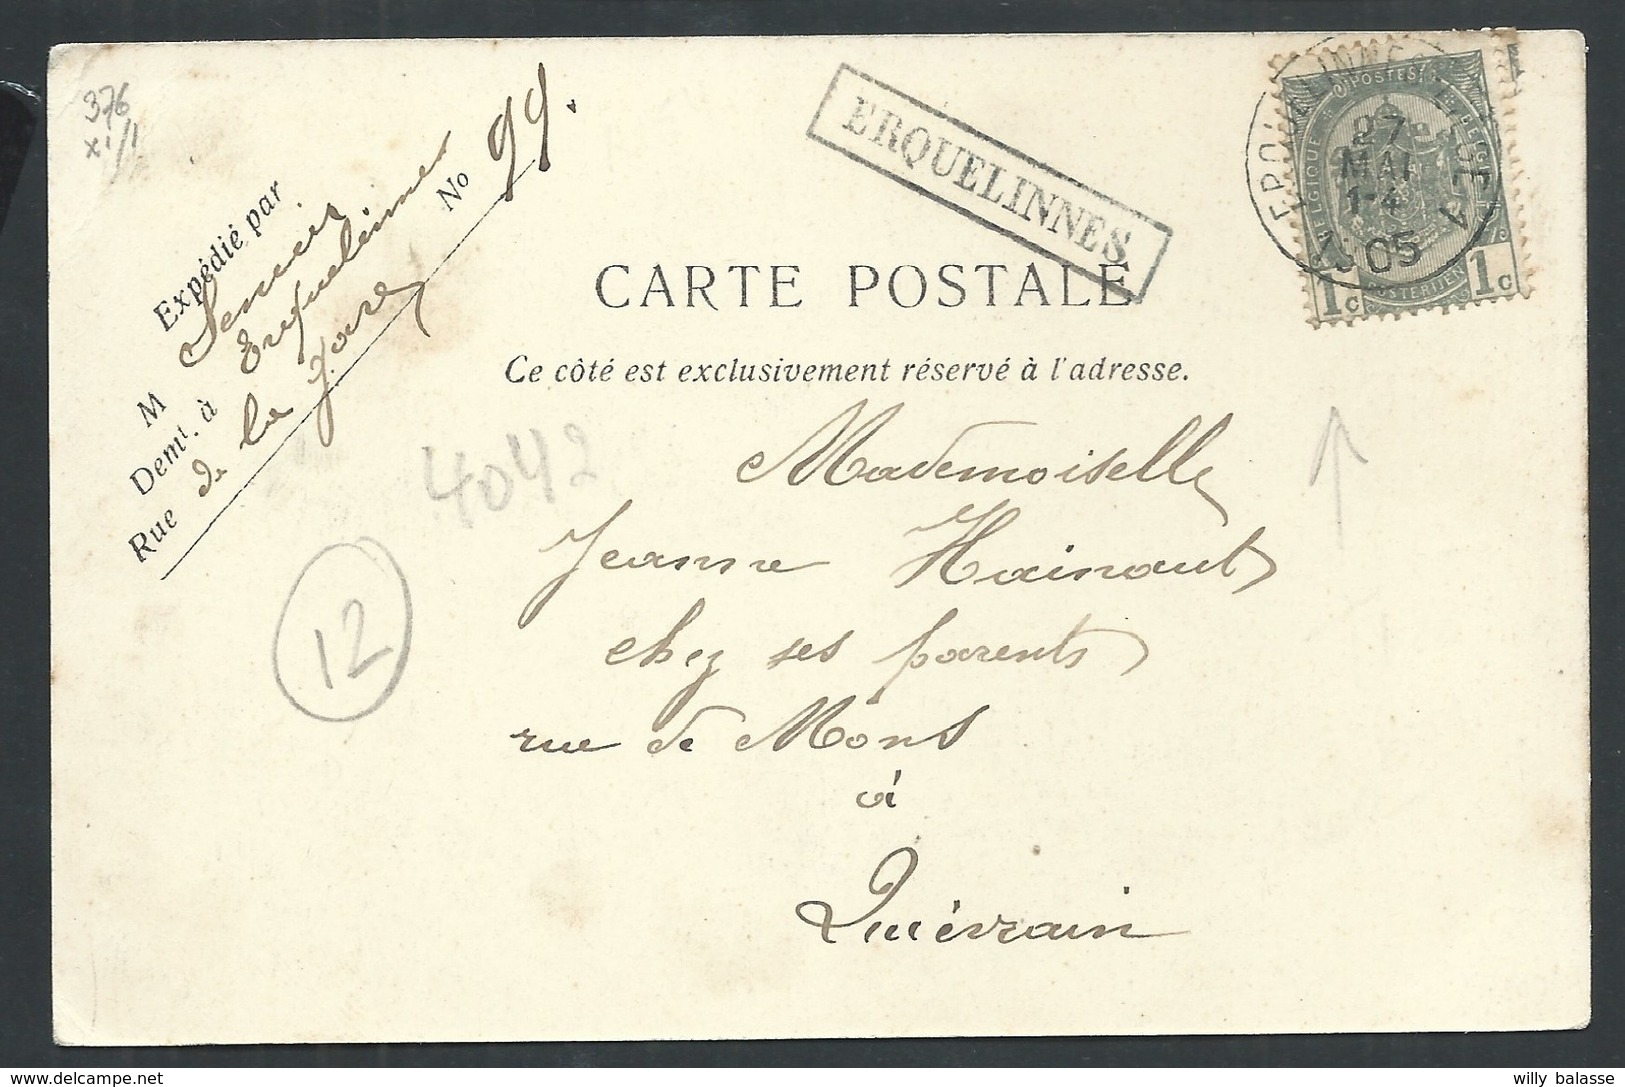 376
XI/1
Expédié par
M Sencie
Demt. à Erquelinnes
Rue de la Gare No 99.
ERQUELINNES
27
MAI
1-4
05
POSTES
1c 1c
CARTE POSTALE
Ce côté est exclusivement réservé à l'adresse.
4042
12
Mademoiselle
Jeanne Hainaut
chez ses parents
rue de Mons
à
Quiévrain
willy balasse